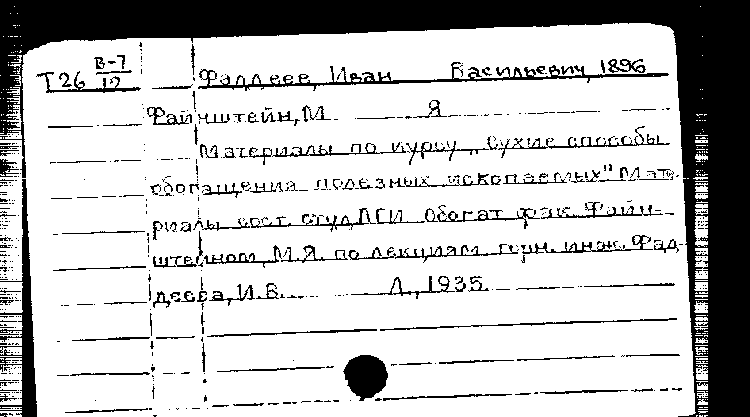 Т26 В-7/12 Фаддеев, Иван Васильевич, 1896
Файнштейн, М. Я
Материалы по курсу „Сухие способы
обогащения полезных ископаемых" Мате-
риалы сост. студ ЛГИ обогат фак. Файн-
штейном, М.Я. по лекциям горн. инж. Фад-
деева, И.В. Л., 1935.